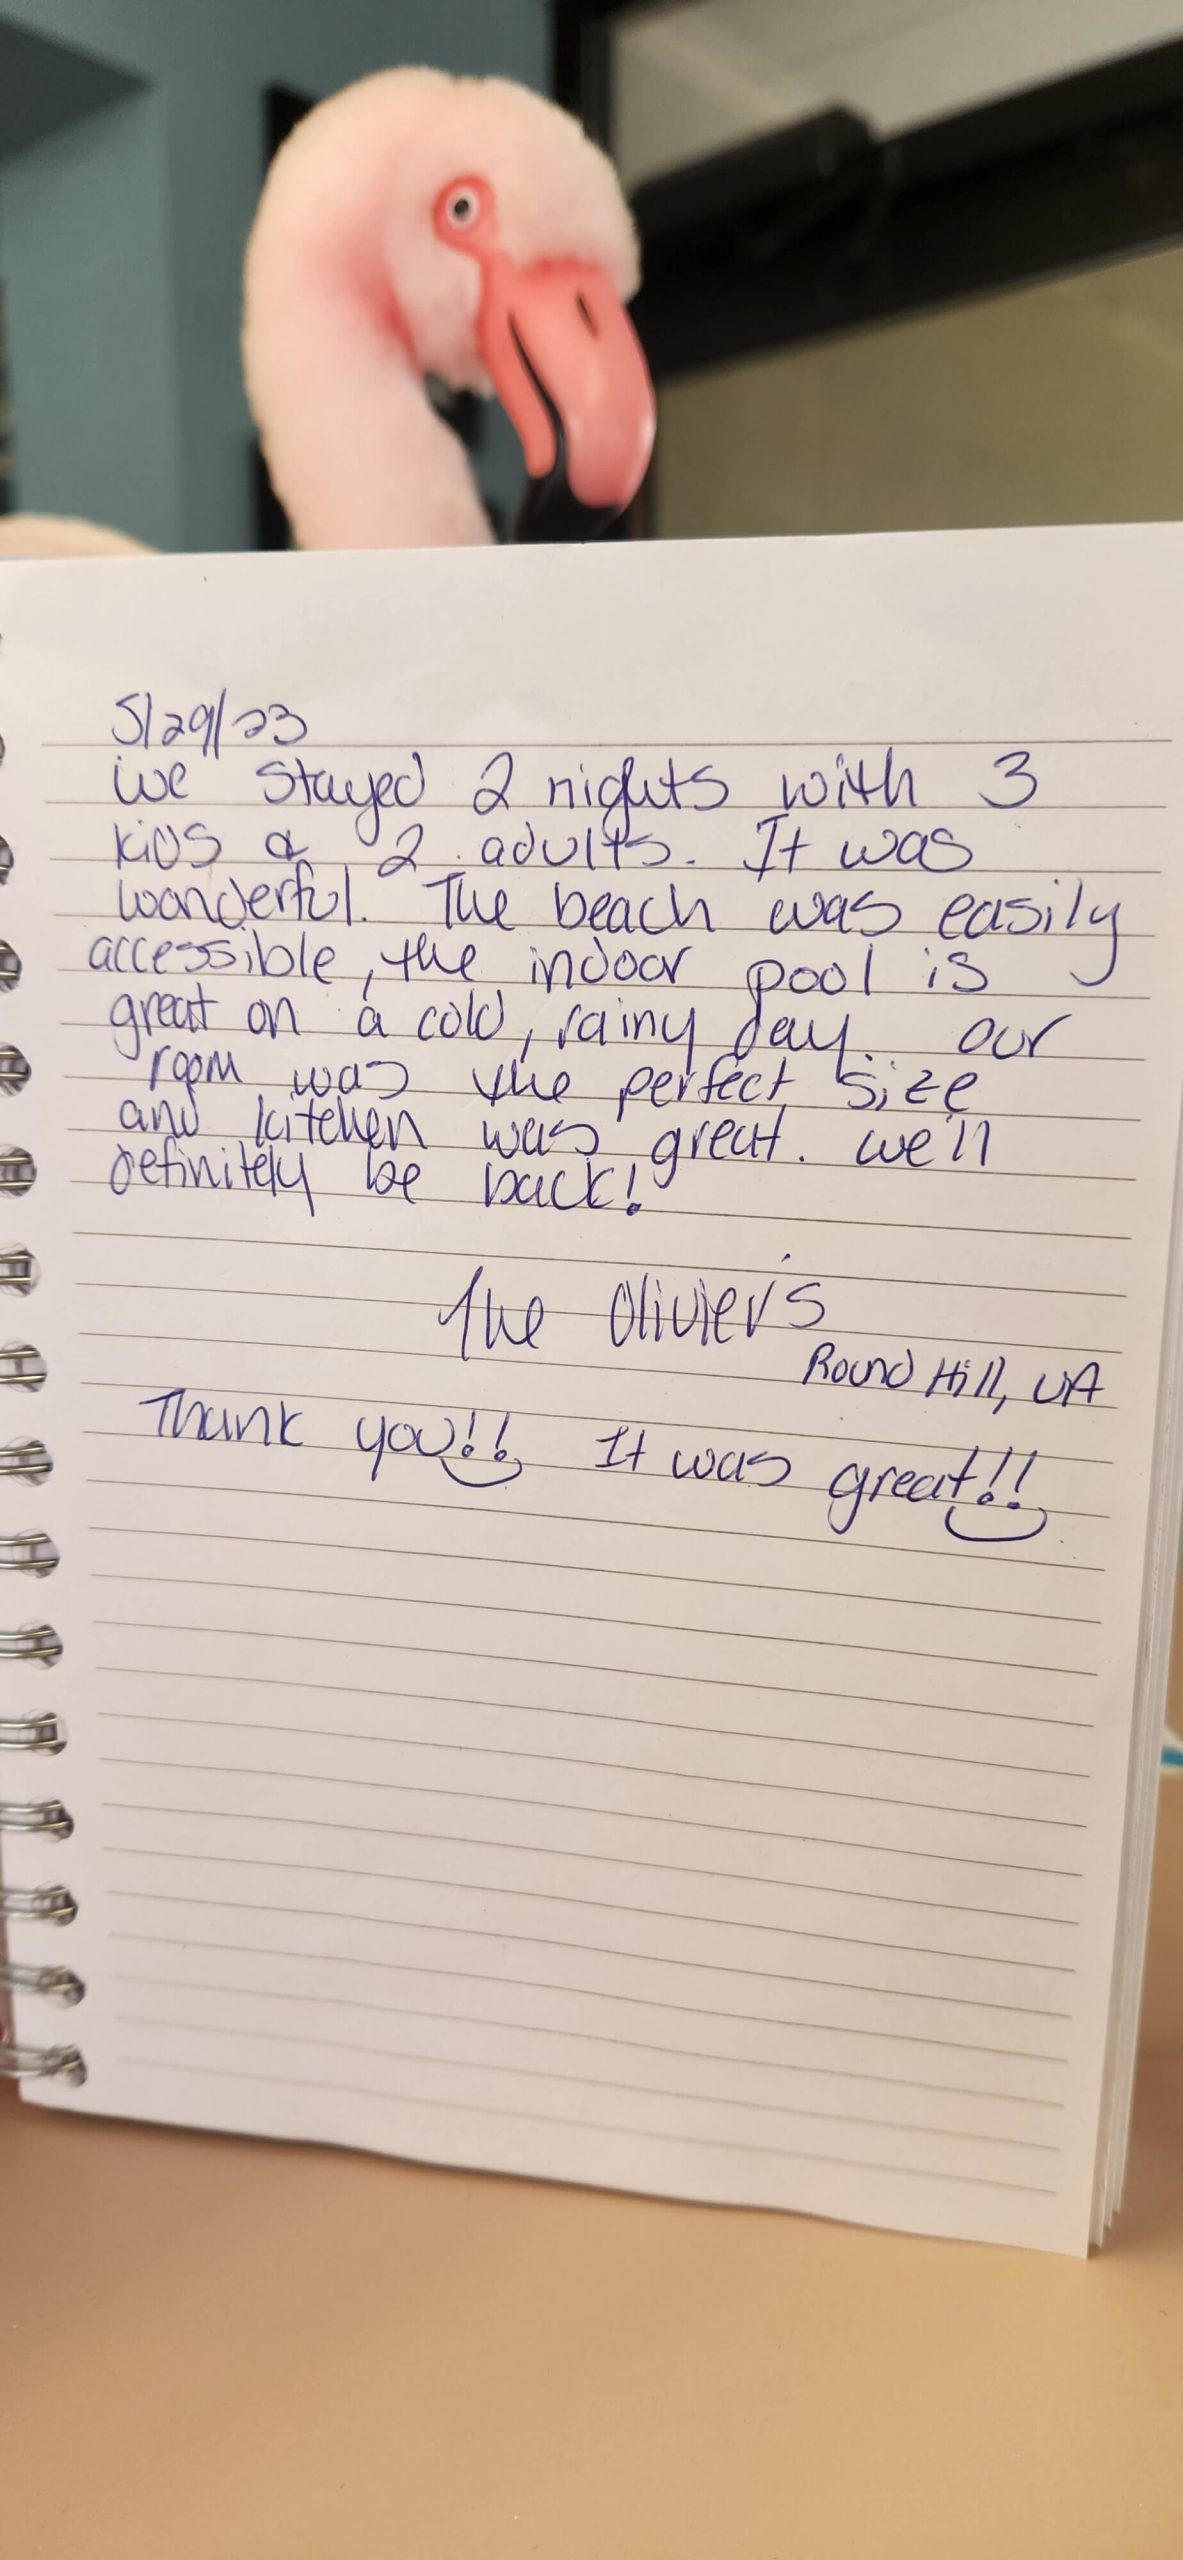 5/29/23
We stayed 2 nights with 3
kids & 2 adults. It was
wonderful. The beach was easily
accessible, the indoor pool is
great on a cold, rainy day. Our
room was the perfect size
and kitchen was great. We'll
definitely be back!
The Olivier's
Round Hill, VA
Thank you!! It was great!!